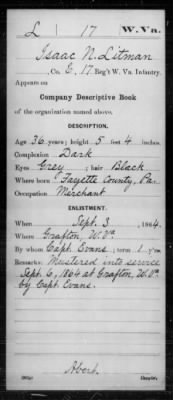 L 17 W. Va.
Isaac N. Litman
, Co. E, 17 Reg't W. Va. Infantry.
Appears on
Company Descriptive Book
of the organization named above.
DESCRIPTION.
Age 36 years; height 5 feet 4 inches.
Complexion Dark
Eyes Grey ; hair Black
Where born Fayette County, Pa.
Occupation Merchant
ENLISTMENT.
When Sept. 3 , 1864.
Where Grafton, W. Va.
By whom Capt. Evans ; term 1 y'rs.
Remarks: Mustered into service
Sept. 6, 1864 at Grafton, W. Va.
by Capt. Evans.
Copyist.